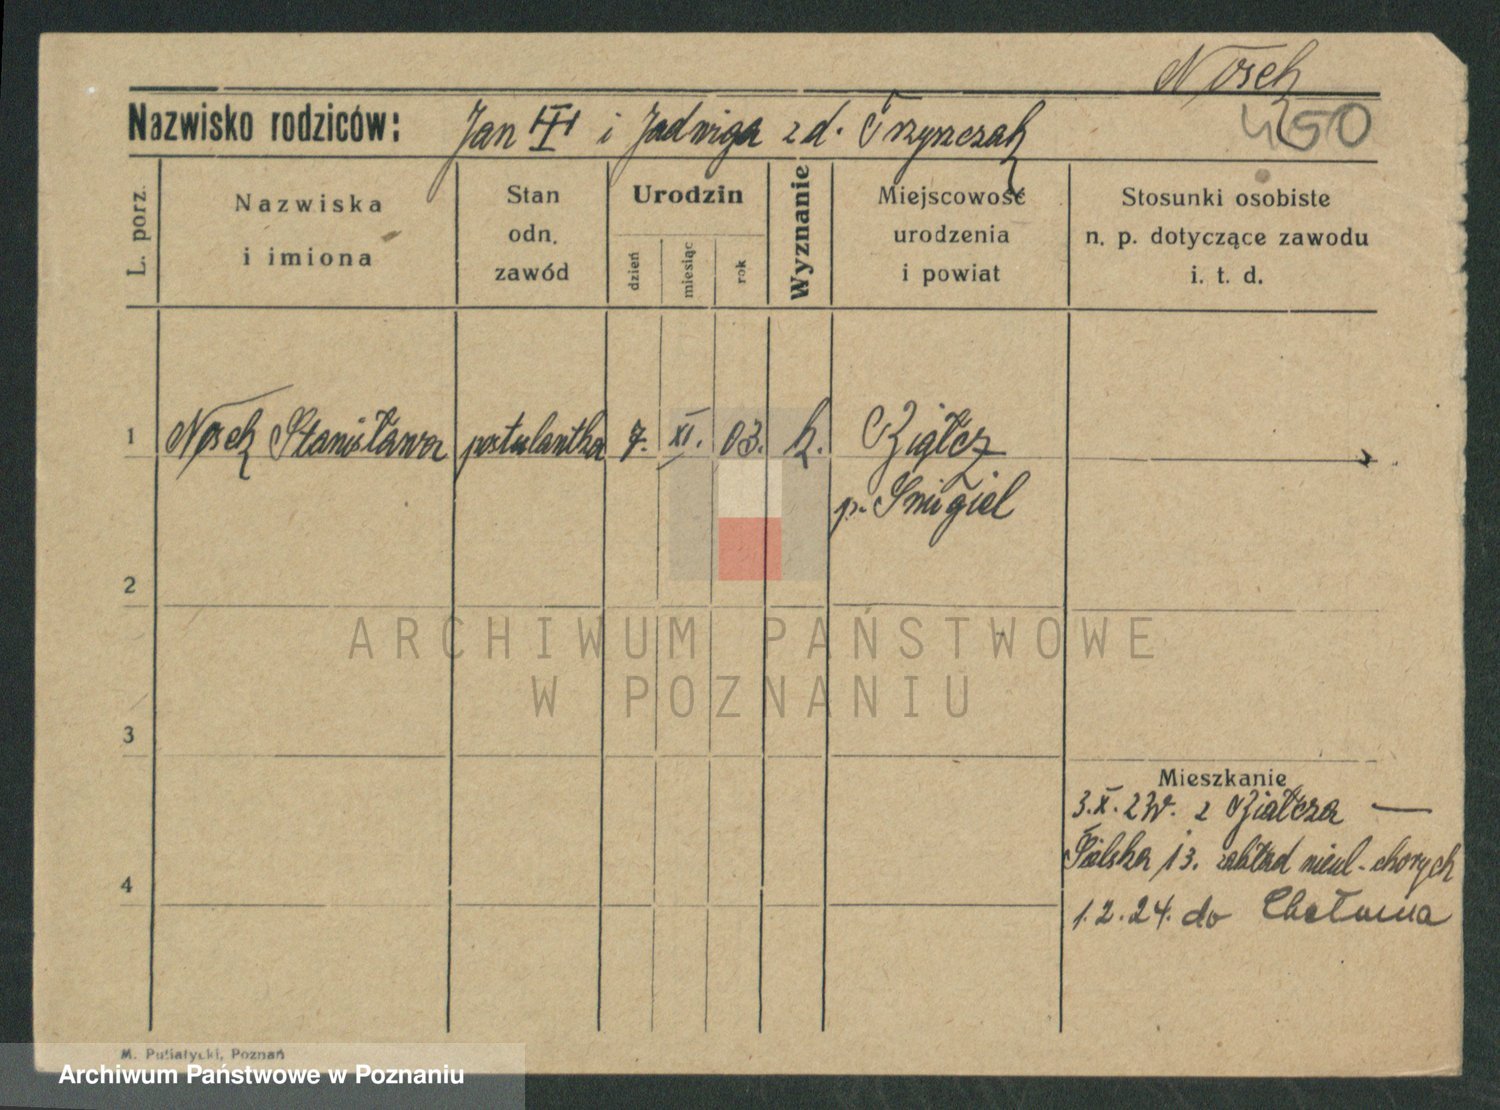 Nosek
Nazwisko rodziców: Jan i Jadwiga z d. Trzyszczak
450
L. porz.
Nazwiska
i imiona
Stan
odn.
zawód
Urodzin
dzień
miesiąc
rok
Wyznanie
Miejscowość
urodzenia
i powiat
Stosunki osobiste
n. p. dotyczące zawodu
i. t. d.
1 Nosek Stanisława postulantka 7. XI. 03. k. Białcz
p. Śmigiel
2
ARCHIWUM PAŃSTWOWE
W POZNANIU
3
Mieszkanie
3.X.23r. z Białcza —
Śielska 13. zakład nieul-chorych
4
1.2.24. do Chełmna
M. Putiatycki, Poznań
Archiwum Państwowe w Poznaniu